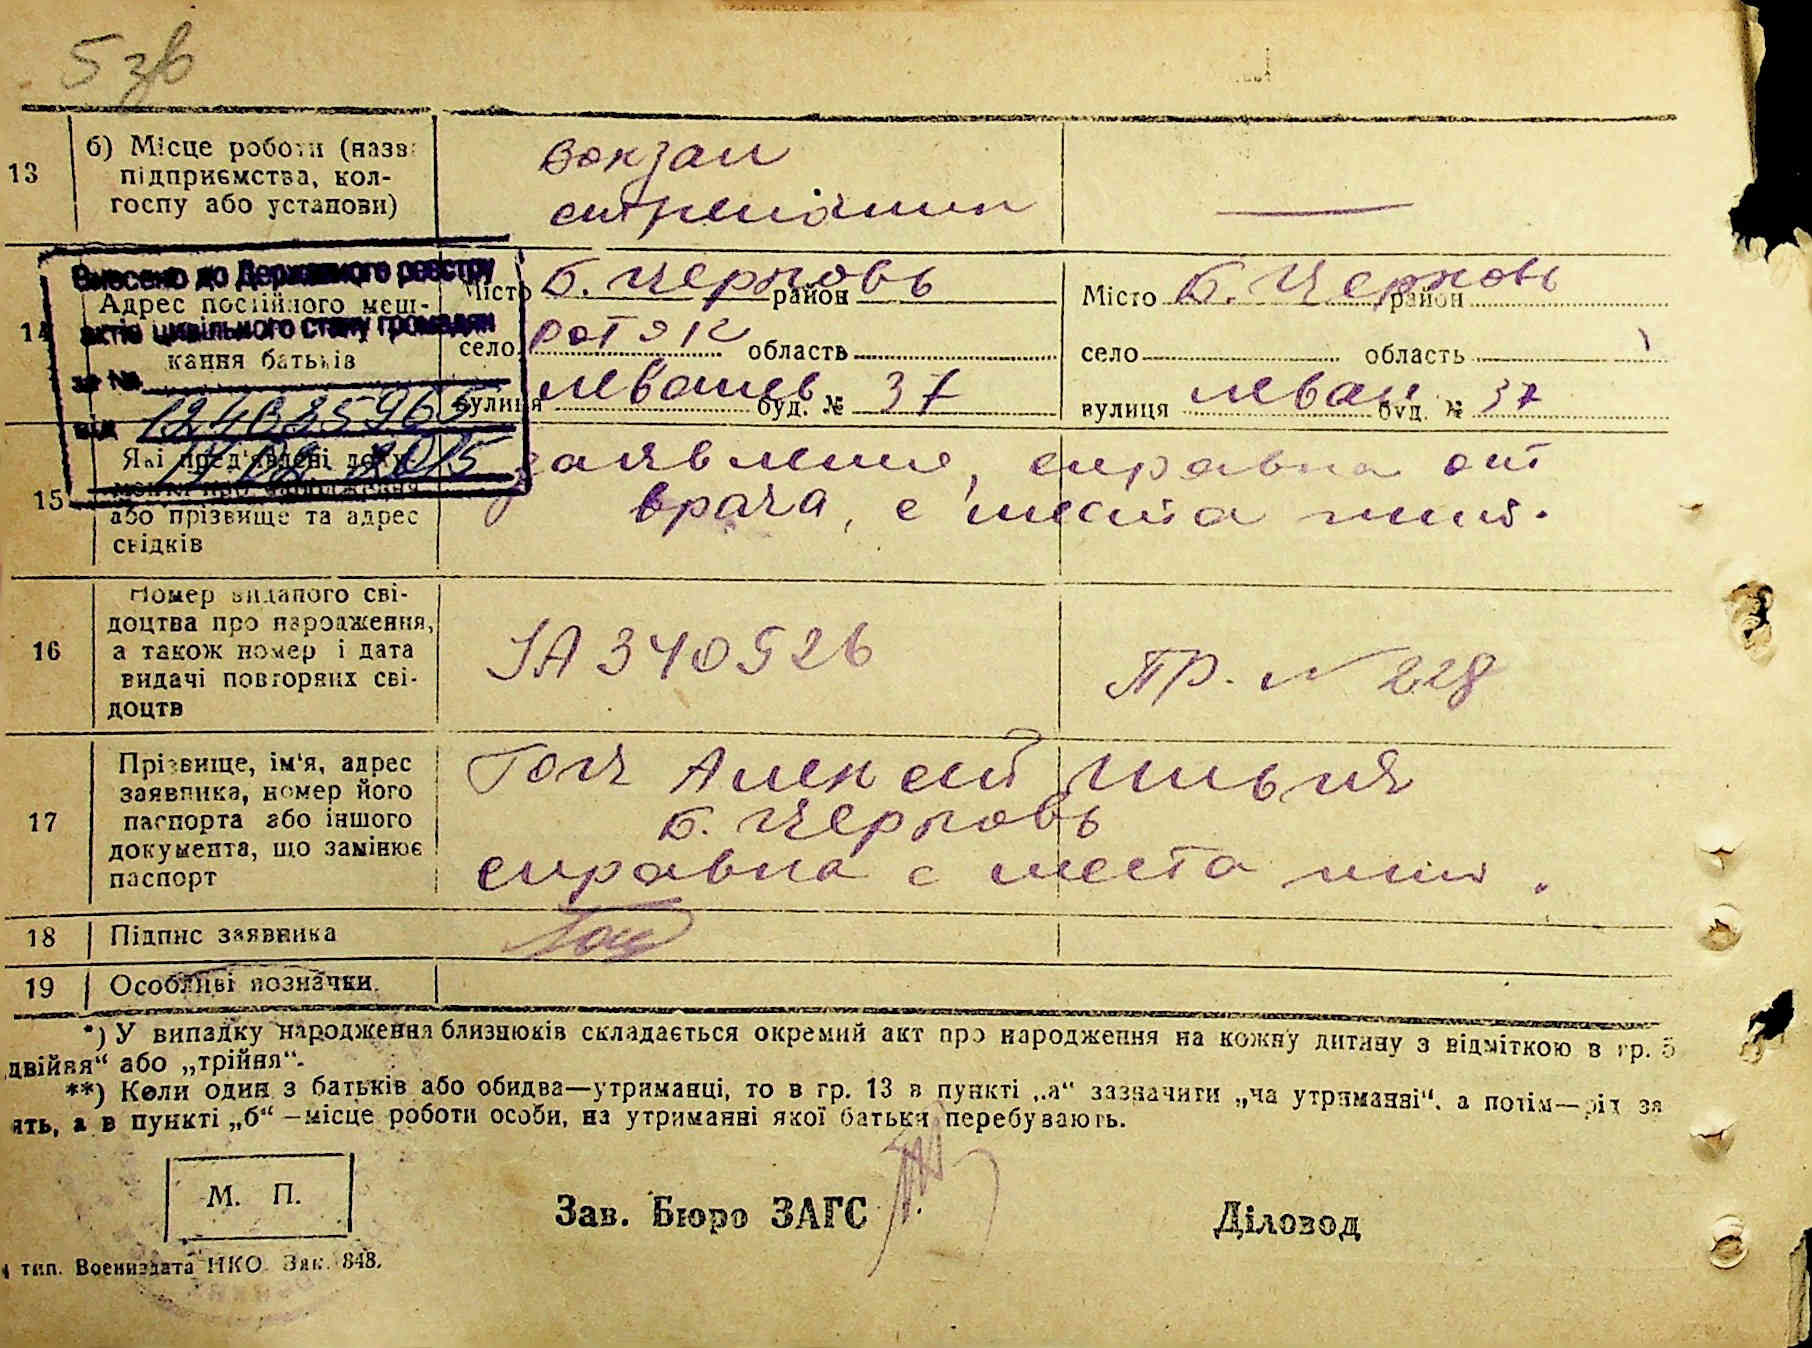 5 зв
13
б) Місце роботи (назва
підприємства, кол-
госпу або установи)
вокзал
—
14
Внесено до Державного реєстру
актів цивільного стану громадян
за №
від
Адрес постійного меш-
кання батьків
Місто Б. Черновь район
село область
вулиця буд. № 37
Місто Б. Черновь район
село область
вулиця Леван буд. № 37
15
Які пред'явлені доку-
менти про народження
або прізвище та адрес
свідків
заявление, справка от
врача, с места жит.
16
Номер виданого сві-
доцтва про народження,
а також номер і дата
видачі повторних сві-
доцтв
ЈА 340526
ПР. N 228
17
Прізвище, ім'я, адрес
заявника, номер його
паспорта або іншого
документа, що замінює
паспорт
Алексей Илья
Б. Черновь
справка с места жит.
18
Підпис заявника
19
Особливі позначки.
*) У випадку народження близнюків складається окремий акт про народження на кожну дитину з відміткою в гр. 5
двійня“ або „трійня“.
**) Коли один з батьків або обидва—утриманці, то в гр. 13 в пункті „а“ зазначити „на утриманні“, а потім—рід за
ять, а в пункті „б“ —місце роботи особи, на утриманні якої батьки перебувають.
М. П.
Зав. Бюро ЗАГС
Діловод
тип. Воениздата НКО. Зак. 848.